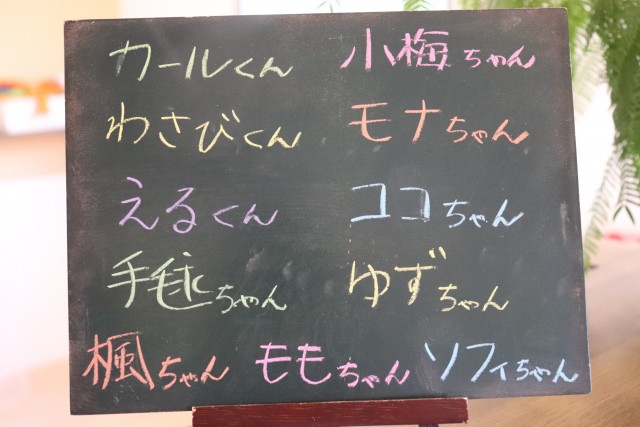 カールくん 小梅ちゃん
わさびくん モナちゃん
えるくん ココちゃん
手毬ちゃん ゆずちゃん
楓ちゃん ももちゃん ソフィちゃん